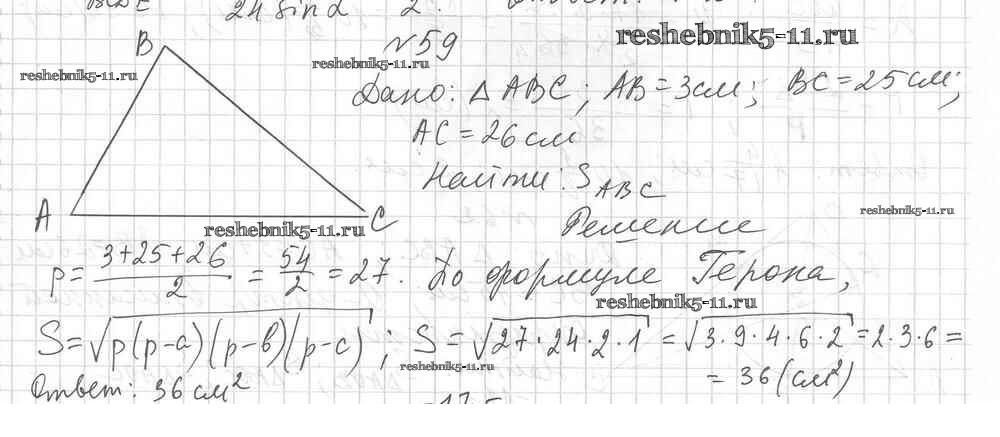 24 sin α 2.
№59
reshebnik5-11.ru
B
reshebnik5-11.ru
reshebnik5-11.ru
Дано: △ ABC; AB = 3 см; BC = 25 см;
AC = 26 см
Найти: S ABC
A
C
reshebnik5-11.ru
reshebnik5-11.ru
Решение
p = (3+25+26)/2 = 54/2 = 27. По формуле Герона,
reshebnik5-11.ru
S = √p(p-a)(p-в)(p-c); S = √27·24·2·1 = √3·9·4·6·2 = 2·3·6 =
reshebnik5-11.ru
= 36 (см²)
Ответ: 36 см²